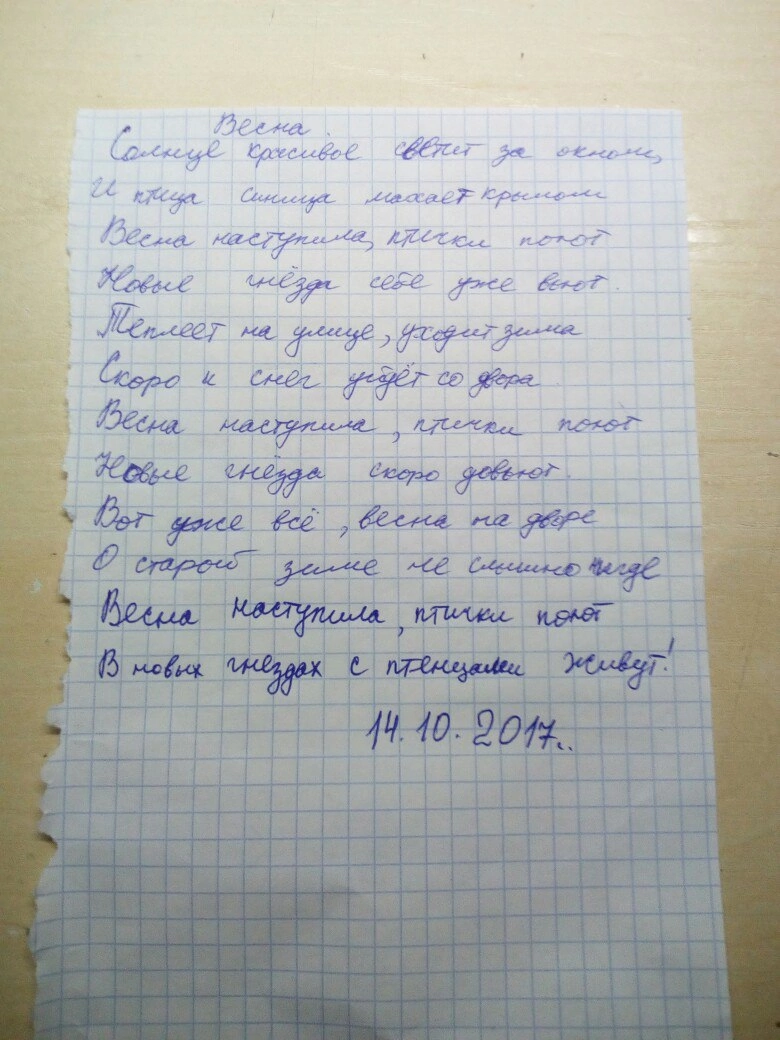 Весна
Солнце красивое светит за окном,
И птица синица махает крылом
Весна наступила, птички поют
Новые гнёзда себе уже вьют.
Теплеет на улице, уходит зима
Скоро и снег уйдёт со двора
Весна наступила, птички поют
Новые гнёзда скоро довьют.
Вот уже всё, весна на дворе
О старой зиме не слышно нигде
Весна наступила, птички поют
В новых гнездах с птенцами живут!
14.10.2017..